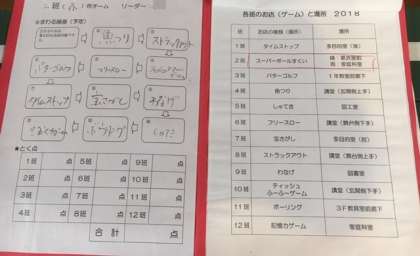 二班
ホーム
リーダー
まわる順番(予定)
魚つり
ストラックアウト
パターゴルフ
フリースロー
タイムストップ
宝さがし
わなげ
ボーリング
しゃてき
★とく点
1班 点 5班 点 9班 点
2班 点 6班 点 10班 点
3班 点 7班 点 11班 点
4班 点 8班 点 12班 点
合計 点
各班のお店(ゲーム)と場所 2018
班 お店の種類(場所) 場所
1班 タイムストップ 多目的室(後)
2班 スーパーボールすくい
家庭科室
3班 パターゴルフ 1年教室前廊下
4班 魚つり 講堂(玄関側上手)
5班 しゃてき 図工室
6班 フリースロー 講堂(舞台側下手)
7班 宝さがし 多目的室(前)
8班 ストラックアウト 講堂(舞台側上手)
9班 わなげ 図書室
10班 ティッシュ
ふーふーゲーム 講堂(玄関側下手)
11班 ボーリング 3F教具室前廊下
12班 記憶力ゲーム 家庭科室